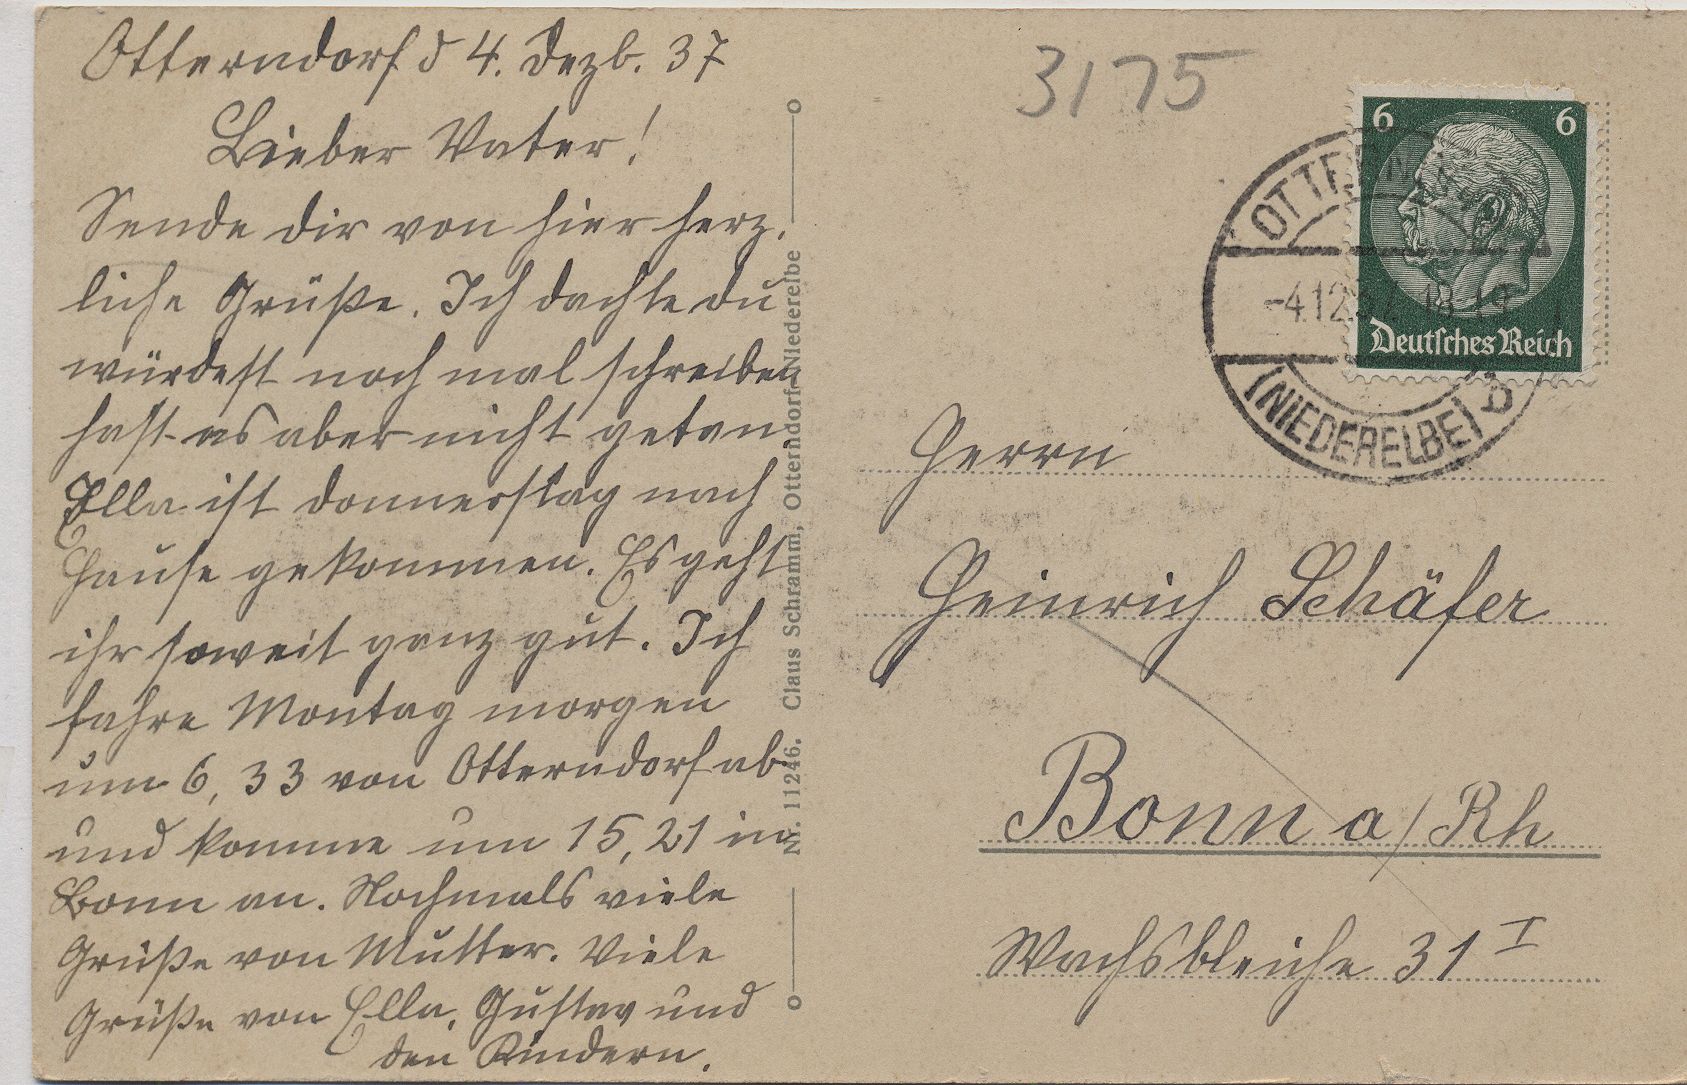 Otterndorf d 4. Dezb. 37
Lieber Vater!
Sende dir von hier herz.
liche Grüße. Ich dachte du
würdest noch mal schreiben
hast es aber nicht getan.
Ella ist donnerstag nach
Hause gekommen. Es geht
ihr soweit ganz gut. Ich
fahre Montag morgen
um 6,33 von Otterndorf ab
und komme um 15,21 in
Bonn an. Nochmals viele
Grüße von Mutter. Viele
Grüße von Ella, Gustav und
den Kindern.
Nr. 11246. Claus Schramm, Otterndorf-Niederelbe
3175
6 6
Deutsches Reich
(NIEDERELBE) b
Herrn
Heinrich Schäfer
Bonn a/Rh
Wachsbleiche 31 I